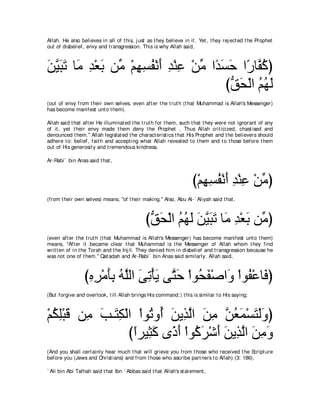 Allah. He also believes in all of this, just as they believe in it. Yet, they rejected the Prophet
out of disbelief, envy and transgression. This is why Allah said,
كُفَّارًا حَسَدًا مِّنْ عِندِ أَنفُسِهِمْ مِّن بَعْدِ مَا تَبَيَّنَ)
(لَهُمُ الْحَقُّ
(out of envy from their own selves, even after the truth (that Muhammad is Allah's Messenger)
has become manifest unto them).
Allah said that after He illuminated the truth for them, such that they were not ignorant of any
of it, yet their envy made them deny the Prophet . Thus Allah criticized, chastised and
denounced them." Allah legislated the characteristics that His Prophet and the believers should
adhere to: belief, faith and accepting what Allah revealed to them and to those before them
out of His generosity and tremendous kindness.
Ar-Rabi` bin Anas said that,
(مِّنْ عِندِ أَنفُسِهِمْ)
(from their own selves) means, "of their making." Also, Abu Al-`Aliyah said that,
(مِّن بَعْدِ مَا تَبَيَّنَ لَهُمُ الْحَقُّ)
(even after the truth (that Muhammad is Allah's Messenger) has become manifest unto them)
means, "After it became clear that Muhammad is the Messenger of Allah whom they find
written of in the Torah and the Injil. They denied him in disbelief and transgression because he
was not one of them." Qatadah and Ar-Rabi` bin Anas said similarly. Allah said,
(فَاعْفُوا وَاصْفَحُوا حَتَّى يَأْتِيَ اللَّهُ بِأَمْرِهِ)
(But forgive and overlook, till Allah brings His command.) this is similar to His saying;
(وَلَتَسْمَعُنَّ مِنَ الَّذِينَ أُوتُوا الْكِتَـبَ مِن قَبْلِكُمْ
وَمِنَ الَّذِينَ أَشْرَكُوا أَذًى كَثِيراً)
(And you shall certainly hear much that will grieve you from those who received the Scripture
before you (Jews and Christians) and from those who ascribe partners to Allah) (3: 186).
`Ali bin Abi Talhah said that Ibn `Abbas said that Allah's statement,